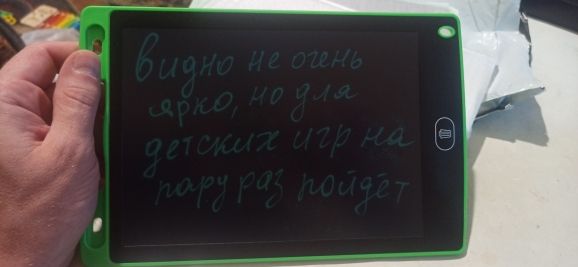 видно не очень
ярко, но для
детских игр на
пару раз пойдёт